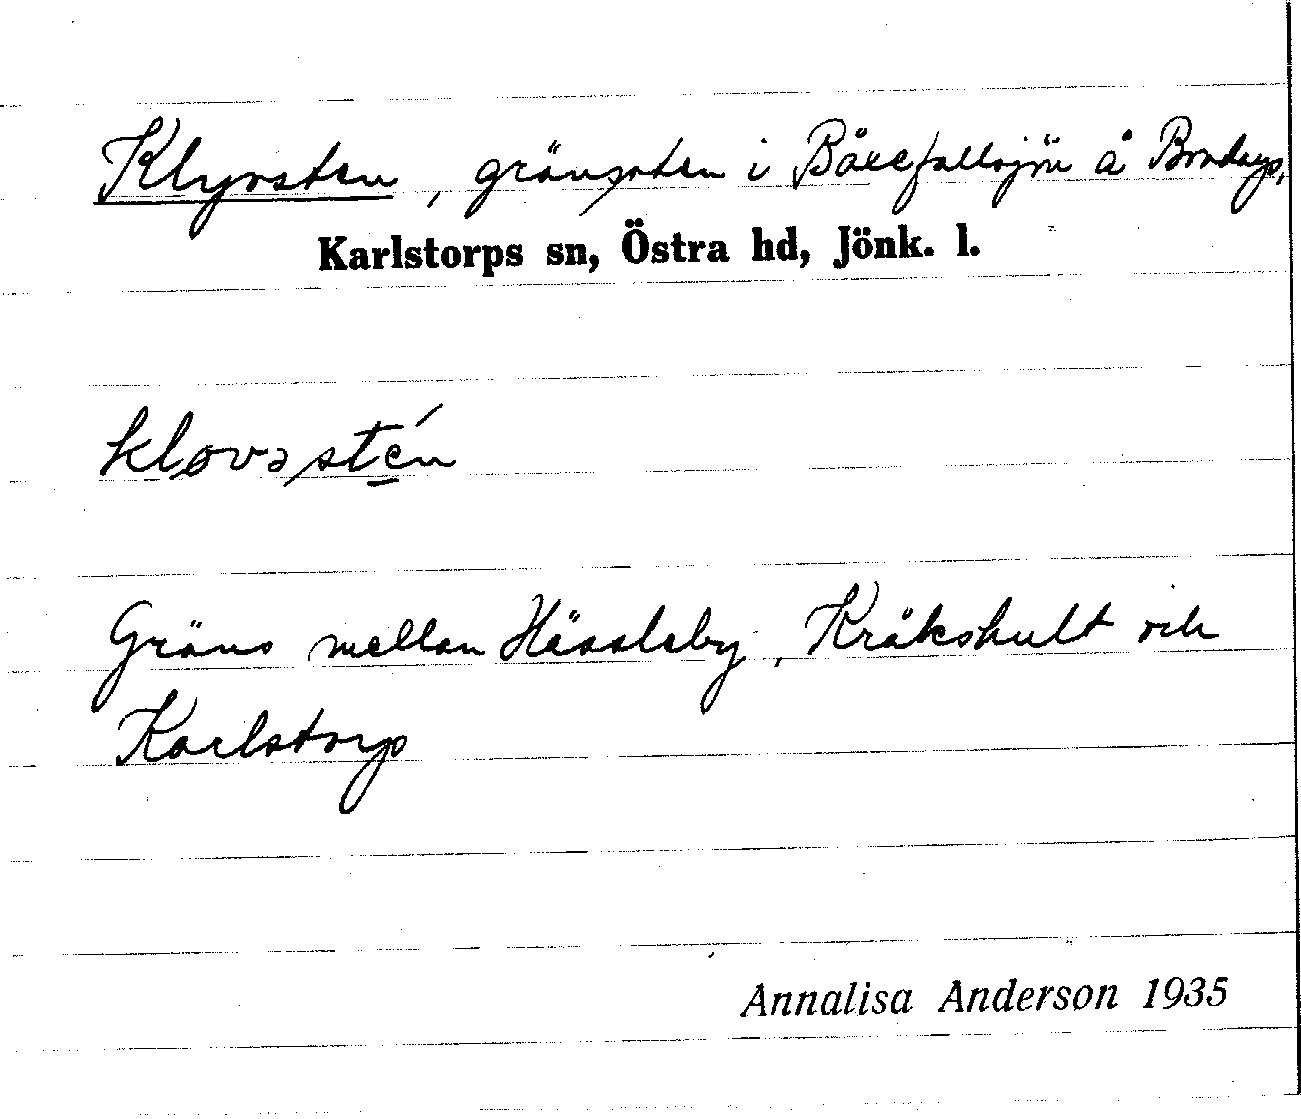 Klyvsten, gränssten i i å
Karlstorps sn, Östra hd, Jönk. l.
kløvəstén
Gräns mellan Hässleby, Kråkshult och
Karlstorp
Annalisa Anderson 1935